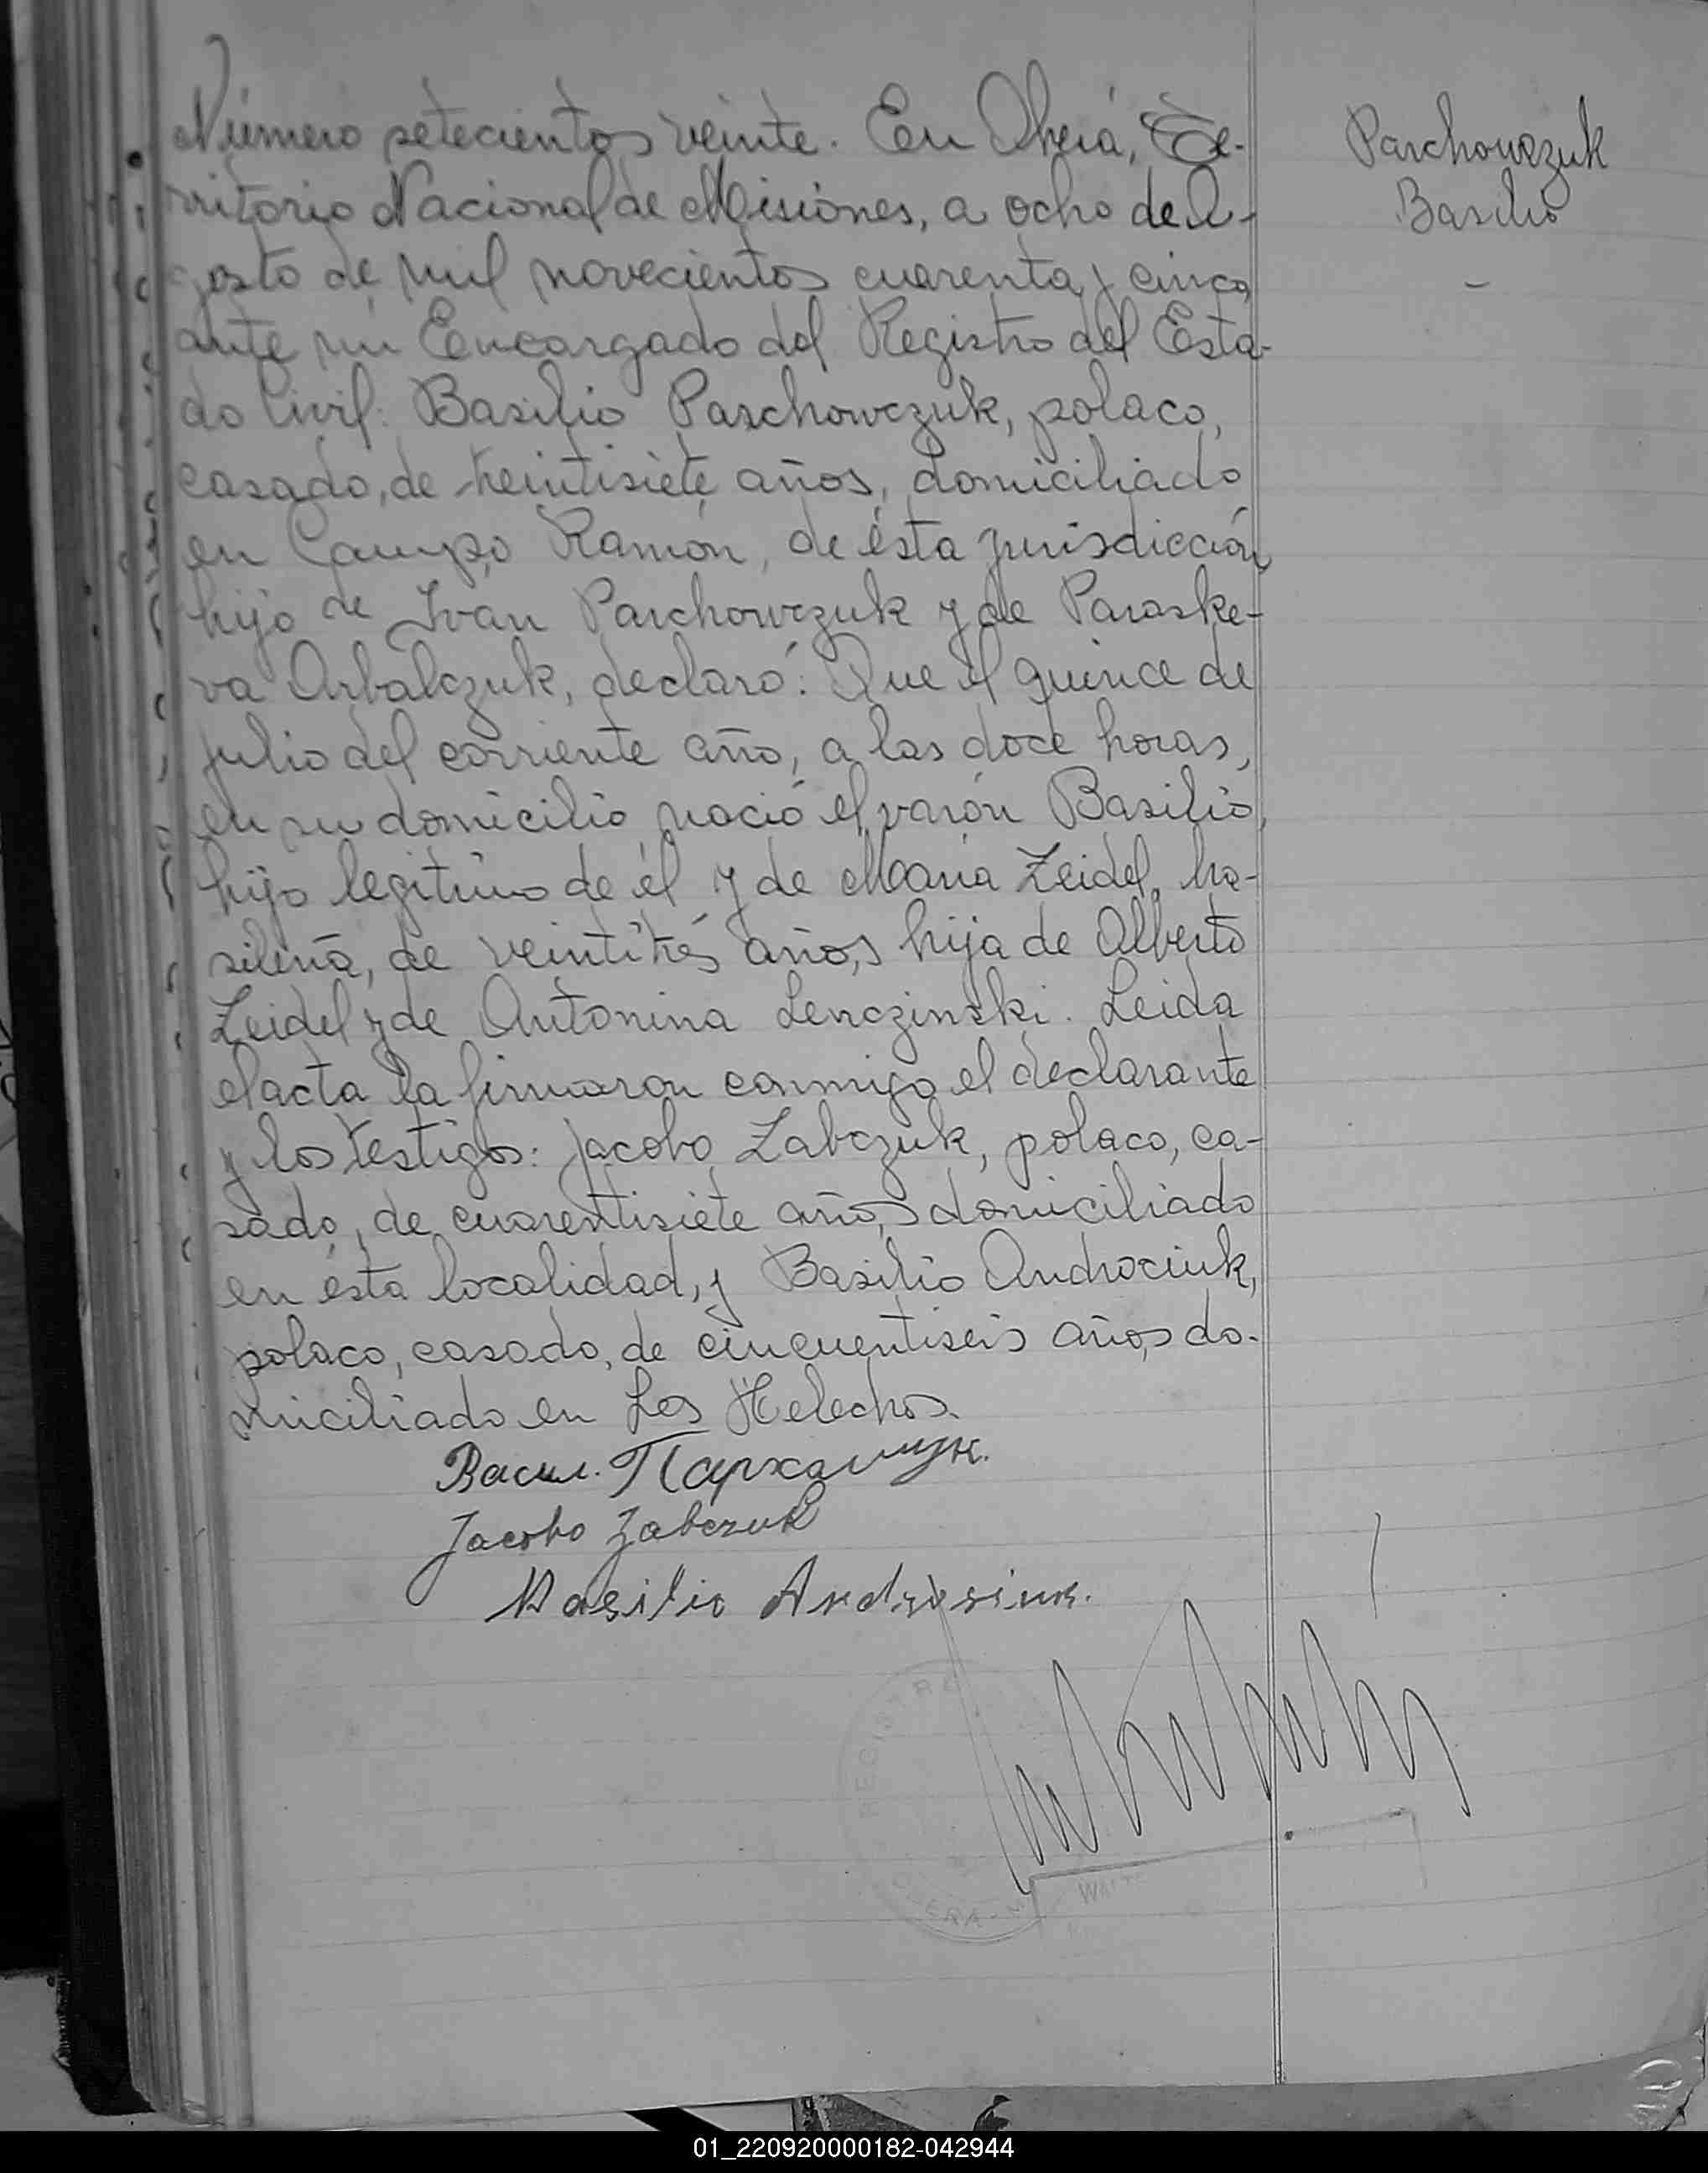 Número setecientos veinte. En Oberá, Te-
rritorio Nacional de Misiones, a ocho de A-
gosto de mil novecientos cuarenta y cinco
ante mi Encargado del Registro del Esta-
do Civil: Basilio Parchowczuk, polaco,
casado, de treintisiete años, domiciliado
en Campo Ramón, de ésta jurisdicción
hijo de Iván Parchowczuk y de Paraske-
va Arbalczuk, declaró: Que el quince de
julio del corriente año, a las doce horas,
en su domicilio nació el varón Basilio,
hijo legitimo de él y de María Zeidel, bra-
sileña, de veintitrés años, hija de Alberto
Zeidel y de Antonina Lenczinski. Leida
el acta la firmaron conmigo el declarante
y los testigos: Jacobo Zabczuk, polaco, ca-
sado, de cuarentisiete años, domiciliado
en ésta localidad, y Basilio Androciuk,
polaco, casado, de cincuentiseis años, do-
miciliado en Los Helechos.
Васил. Пархамчук.
Jacobo Zabczuk
Basilio Androsiuk.
Parchowczuk
Basilio
REGISTRO
WALT
01_220920000182-042944